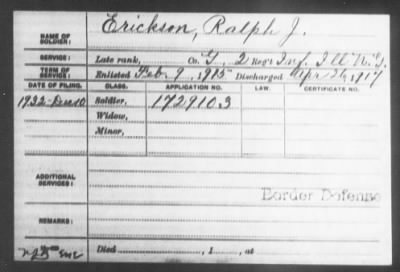 NAME OF SOLDIER: Erickson, Ralph J.
SERVICE: Late rank, Co. G, 2 Reg't Inf. Ill N.G.
TERM OF SERVICE: Enlisted Feb. 9, 1915 Discharged Apr 26, 1917
DATE OF FILING. CLASS. APPLICATION NO. LAW. CERTIFICATE NO.
1932-Dec10 Soldier, 1729103
Widow,
Minor,
ADDITIONAL SERVICES:
Border Defense
REMARKS:
Died , 1 , at